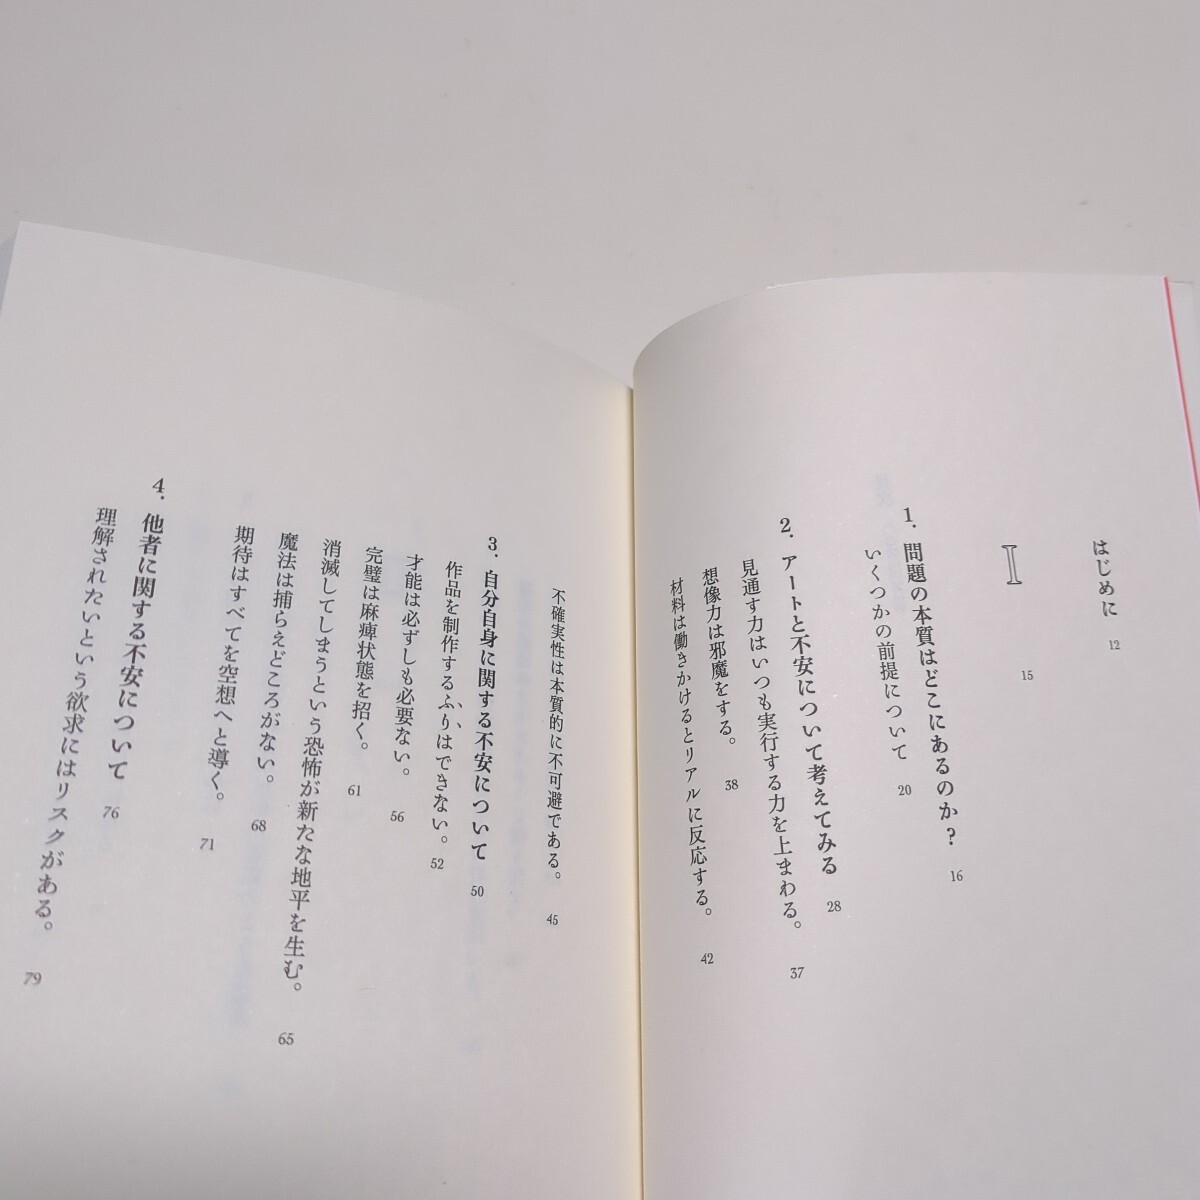 はじめに 12
I 15
1. 問題の本質はどこにあるのか? 16
いくつかの前提について 20
2. アートと不安について考えてみる 28
見通す力はいつも実行する力を上まわる。 37
想像力は邪魔をする。 38
材料は働きかけるとリアルに反応する。 42
不確実性は本質的に不可避である。 45
3. 自分自身に関する不安について 50
作品を制作するふりはできない。 52
才能は必ずしも必要ない。 56
完璧は麻痺状態を招く。 61
消滅してしまうという恐怖が新たな地平を生む。 65
魔法は捕らえどころがない。 68
期待はすべてを空想へと導く。 71
4. 他者に関する不安について 76
理解されたいという欲求にはリスクがある。 79